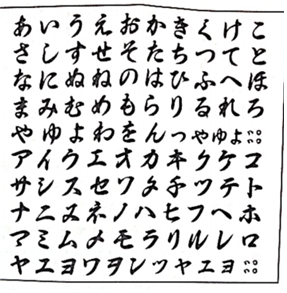 あいうえおかきくけこ
さしすせそたちつてと
なにぬねのはひふへほ
まみむめもらりるれろ
やゆよわをんっゃゅょ
アイウエオカキクケコ
サシスセソタチツテト
ナニヌネノハヒフヘホ
マミムメモラリルレロ
ヤユヨワヲンッャュョ